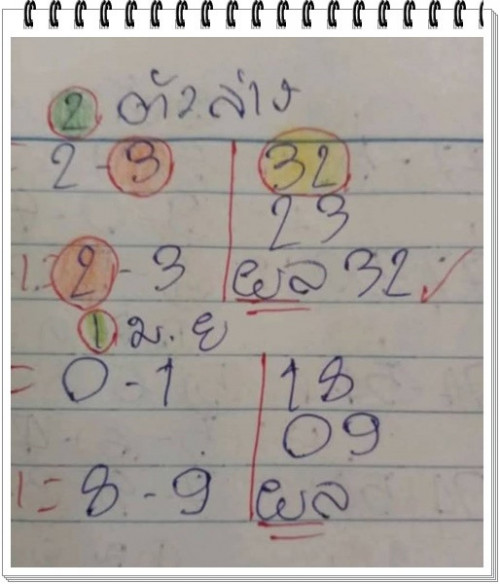 2 ตัวล่าง
= 2 - 3 32
23
1 = 2 - 3 ผล 32 ✓
1 ม.ย
= 0 - 1 18
09
1 = 8 - 9 ผล